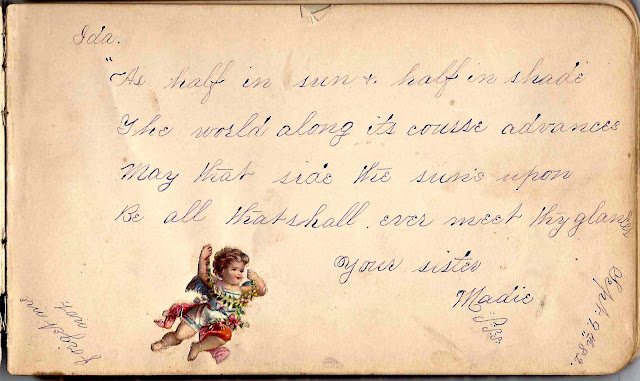 Ida.
"As half in sun & half in shade
The world along its cousse advances
May that side the sun's upon
Be all that shall ever meet thy glances
Your sister
Madie
Sept. 9th 82.
Forget me
not